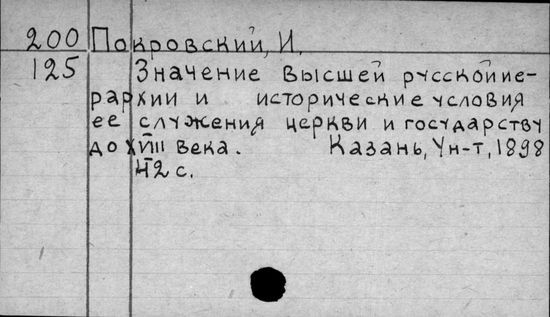 200 Покровский, И.
125 Значение высшей русской ие-
рархии и исторические условия
ее служения церкви и государству
до XVIII века. Казань, Ун-т, 1898
42 с.